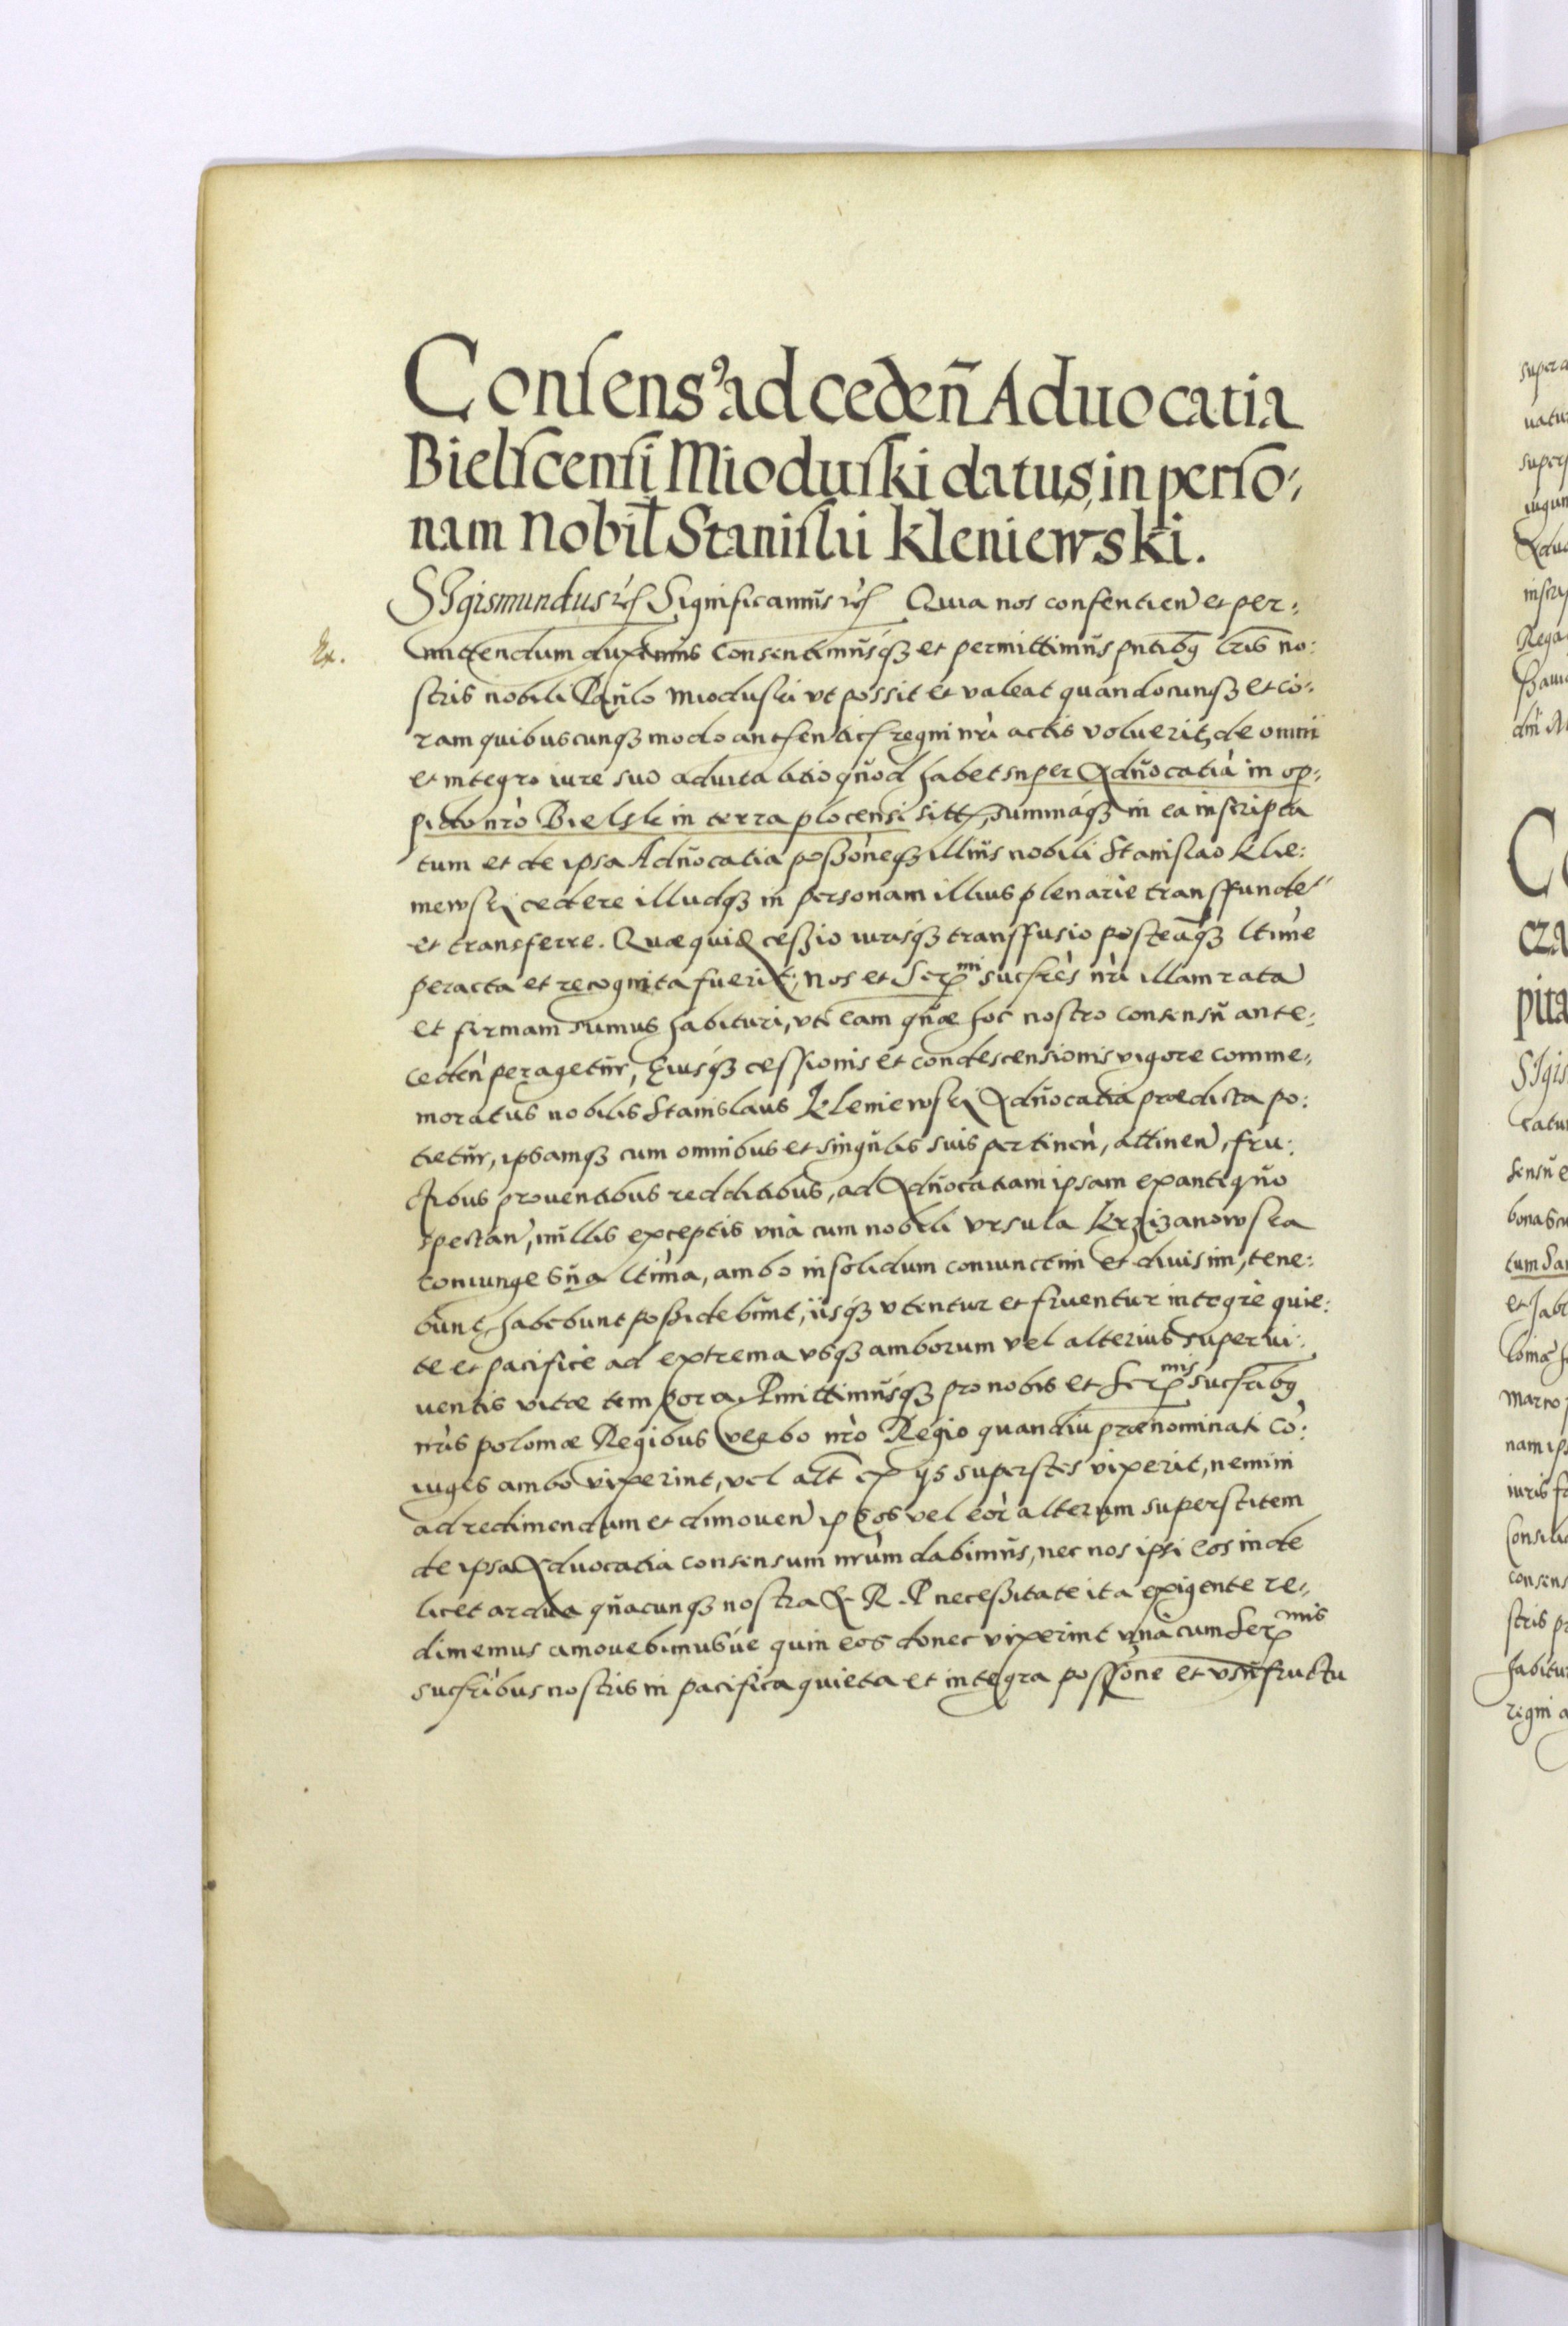 Consens⁹ ad cedeñ Aduocatia
Bielscensi Mioduski datus, in perso:
nam Nobil Stanislai Kleniewski.
SIgismundus rc̃ Significamũs rc̃ Quia nos consentien̄ et per:
Ex. mittendum duximũs consentimũsq̃ et permittimũs pñtibg lr̃is no:
stris nobili Paũlo Mioduski vt possit et valeat quandocunq̃ et co:
ram quibuscunq̃ modo antsenticis regni nr̃i actis voluerit, de omni
et integro iure suo aduitalitio qũod habet super Adũocatia in op:
pido nr̃o Bielsk in terra plocensi sitt, summáq̃ in ea inscripta
tum et de ipsa Adũocatia possoneq̃ illiũs nobili Stanislao Klie:
niewski cedere illudq̃ in personam illius plenarie transffunde
et transferre. Quæquid cessio iurisq̃ transffusio posteaq̃ ltime
peracta et recognita fuerit; nos et Ser^mi sucsres nr̃i illam rata
et firmam sumus habituri, vti eam qũæ hoc nostro consensũ ante:
ceden̄ peragetũr, Eiusq̃ cessionis et condescensionis vigore comme:
moratus nobilis Stanislaus Kleniewski Adũocatia prædicta po:
tietũr, ipsamq̃ cum omnibus et singũlis suis pertinen̄, attinen̄, fru:
ctibus prouentibus redditibus, ad Adũocatiam ipsam ex antiqũo
spectan̄, nũllis exceptis vna cum nobili Vrsula Krzizanowska
coniunge sũa ltima, ambo insolidum coniunctim et diuisim, tene:
bunt, habebunt possidebũnt, iisq̃ vtentur et fruentur integre quie:
te et pacifice ad extrema vsq̃ amborum vel alterius superui:
uentis vitæ tempora. Pmittimũsq̃ pro nobis et Ser^mis sucsribg
nr̃is poloniæ Regibus verbo nr̃o Regio quandiu prænominati co:
iuges ambo vixerint, vel alt ex ijs superstes vixerit, nemini
ad redimendum et dimouen̄ ipsos vel eor alterum superstitem
de ipsa Aduocatia consensum nr̃um dabimũs, nec nos ipsi eos inde
licet ardua qũacunq̃ nostra & R. P necessitate ita exigente re:
dimemus amouebimusúe quin eos donec vixerint vna cum Ser^mis
sucsribus nostris in pacifica quieta et integra possone et vsũfructu